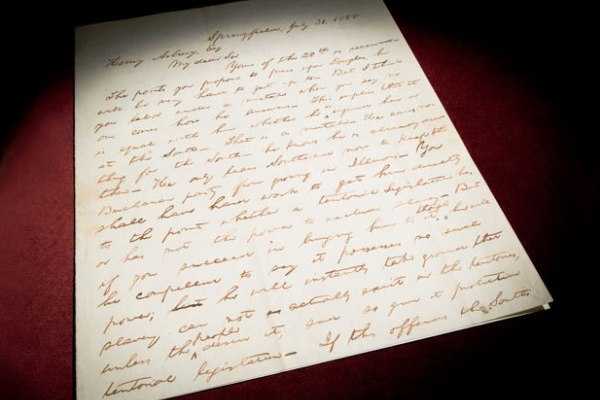 Springfield, July 31, 1858
Henry Asbury, Esq
My dear Sir
Yours of the 28th is received
The points you propose to press upon Douglas, he
will be very hard to get up to. But I think
you labor under a mistake when you say no
one cares how he answers. This implies that it
is equal with him whether he is injured here or
at the South. That is a mistake. He cares no-
thing for the South—he knows he is already dead
there. He only leans Southward now to keep the
Buchanan party from growing in Illinois. You
shall have hard work to get him directly
to the point whether a territorial Legislature has
or has not the power to exclude slavery. But
if you succeed in bringing him to it, though he will
be compelled to say it possesses no such
power; he will instantly take ground that
slavery can not actually exist in the territories,
unless the people desire it, and so give it protective
territorial legislation. If this offends the South